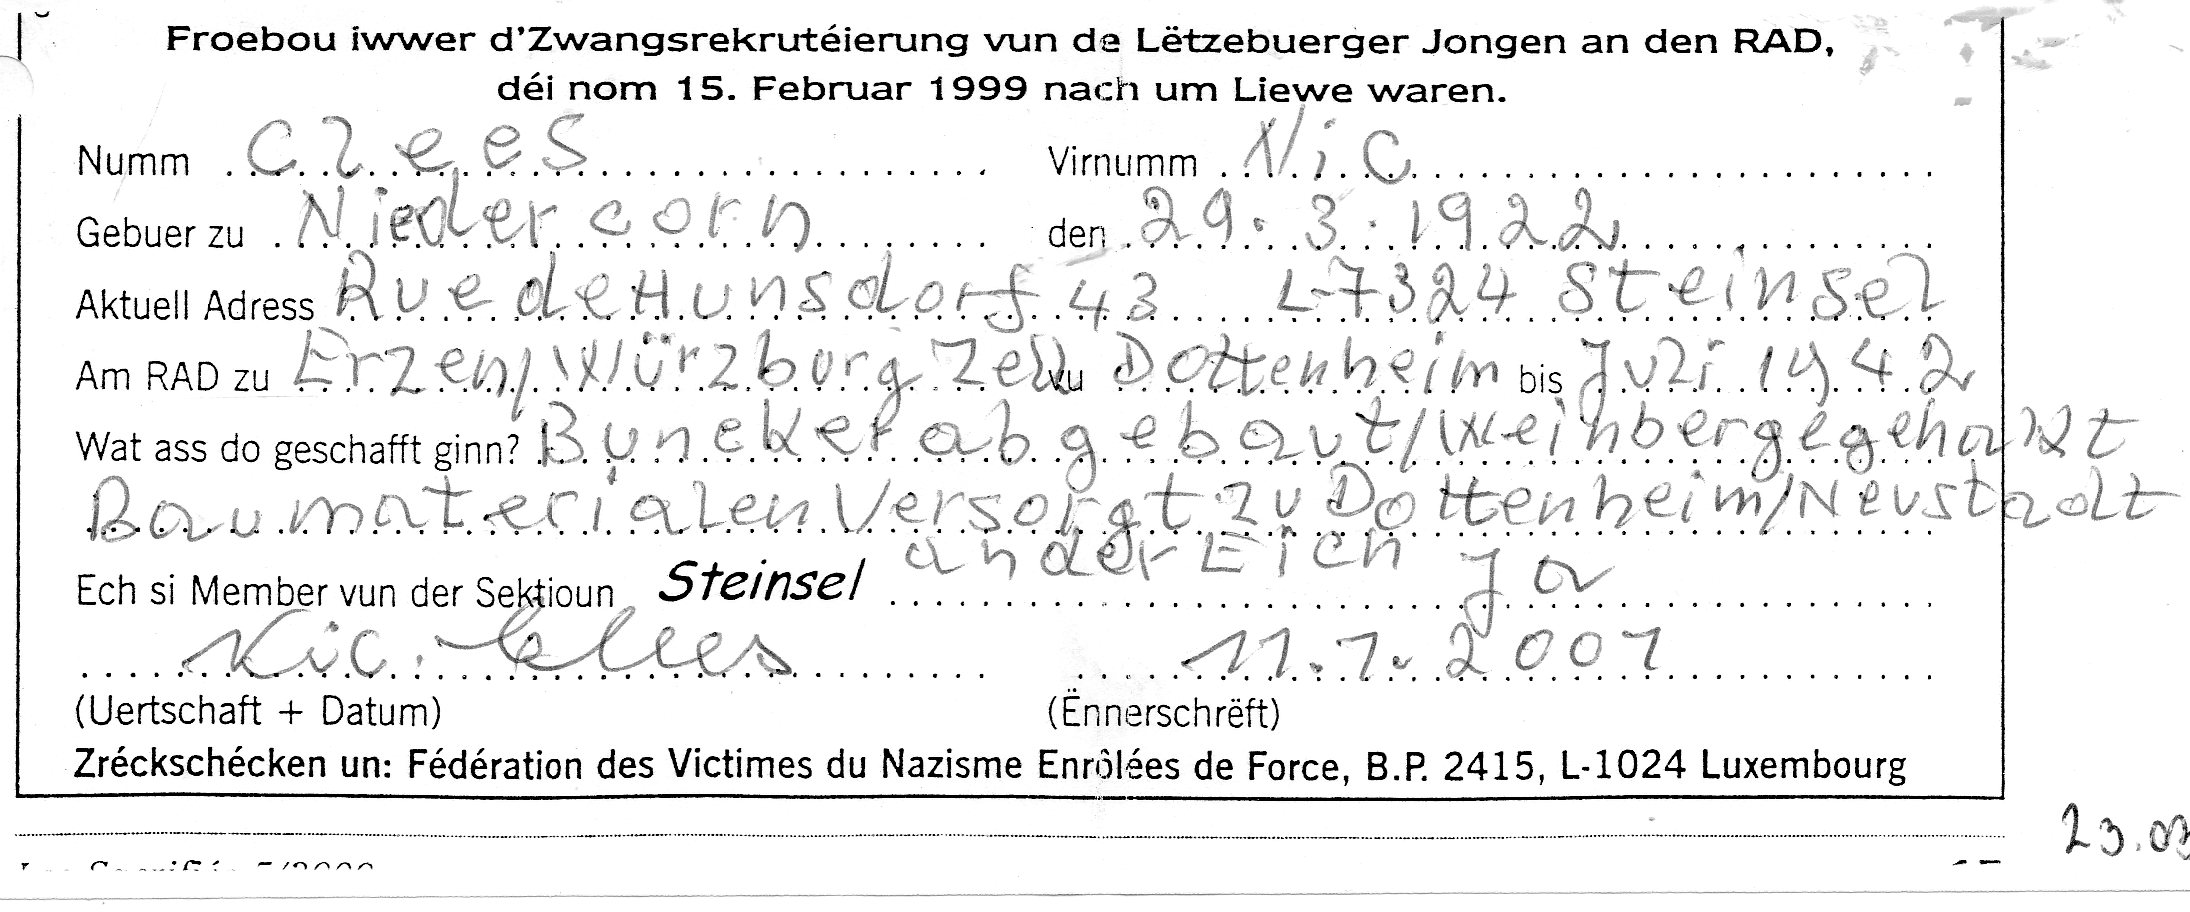 Froebou iwwer d'Zwangsrekrutéierung vun de Lëtzebuerger Jongen an den RAD,
déi nom 15. Februar 1999 nach um Liewe waren.
Numm Clees Virnumm Nic
Gebuer zu Niedercorn den 29.3.1922
Aktuell Adress Rue de Hunsdorf 43 L-7324 Steinsel
Am RAD zu Erzen/Würzburg Zell vu Dottenheim bis Juli 1942
Wat ass do geschafft ginn? Buneker abgebaut/Weinberg gehakt
Baumaterialen Versorgt zu Dottenheim/Neustadt
an der Eich
Ech si Member vun der Sektioun Steinsel Ja
Nic. Clees 11.7.2001
(Uertschaft + Datum) (Ënnerschrëft)
Zréckschécken un: Fédération des Victimes du Nazisme Enrôlées de Force, B.P. 2415, L-1024 Luxembourg
23.03